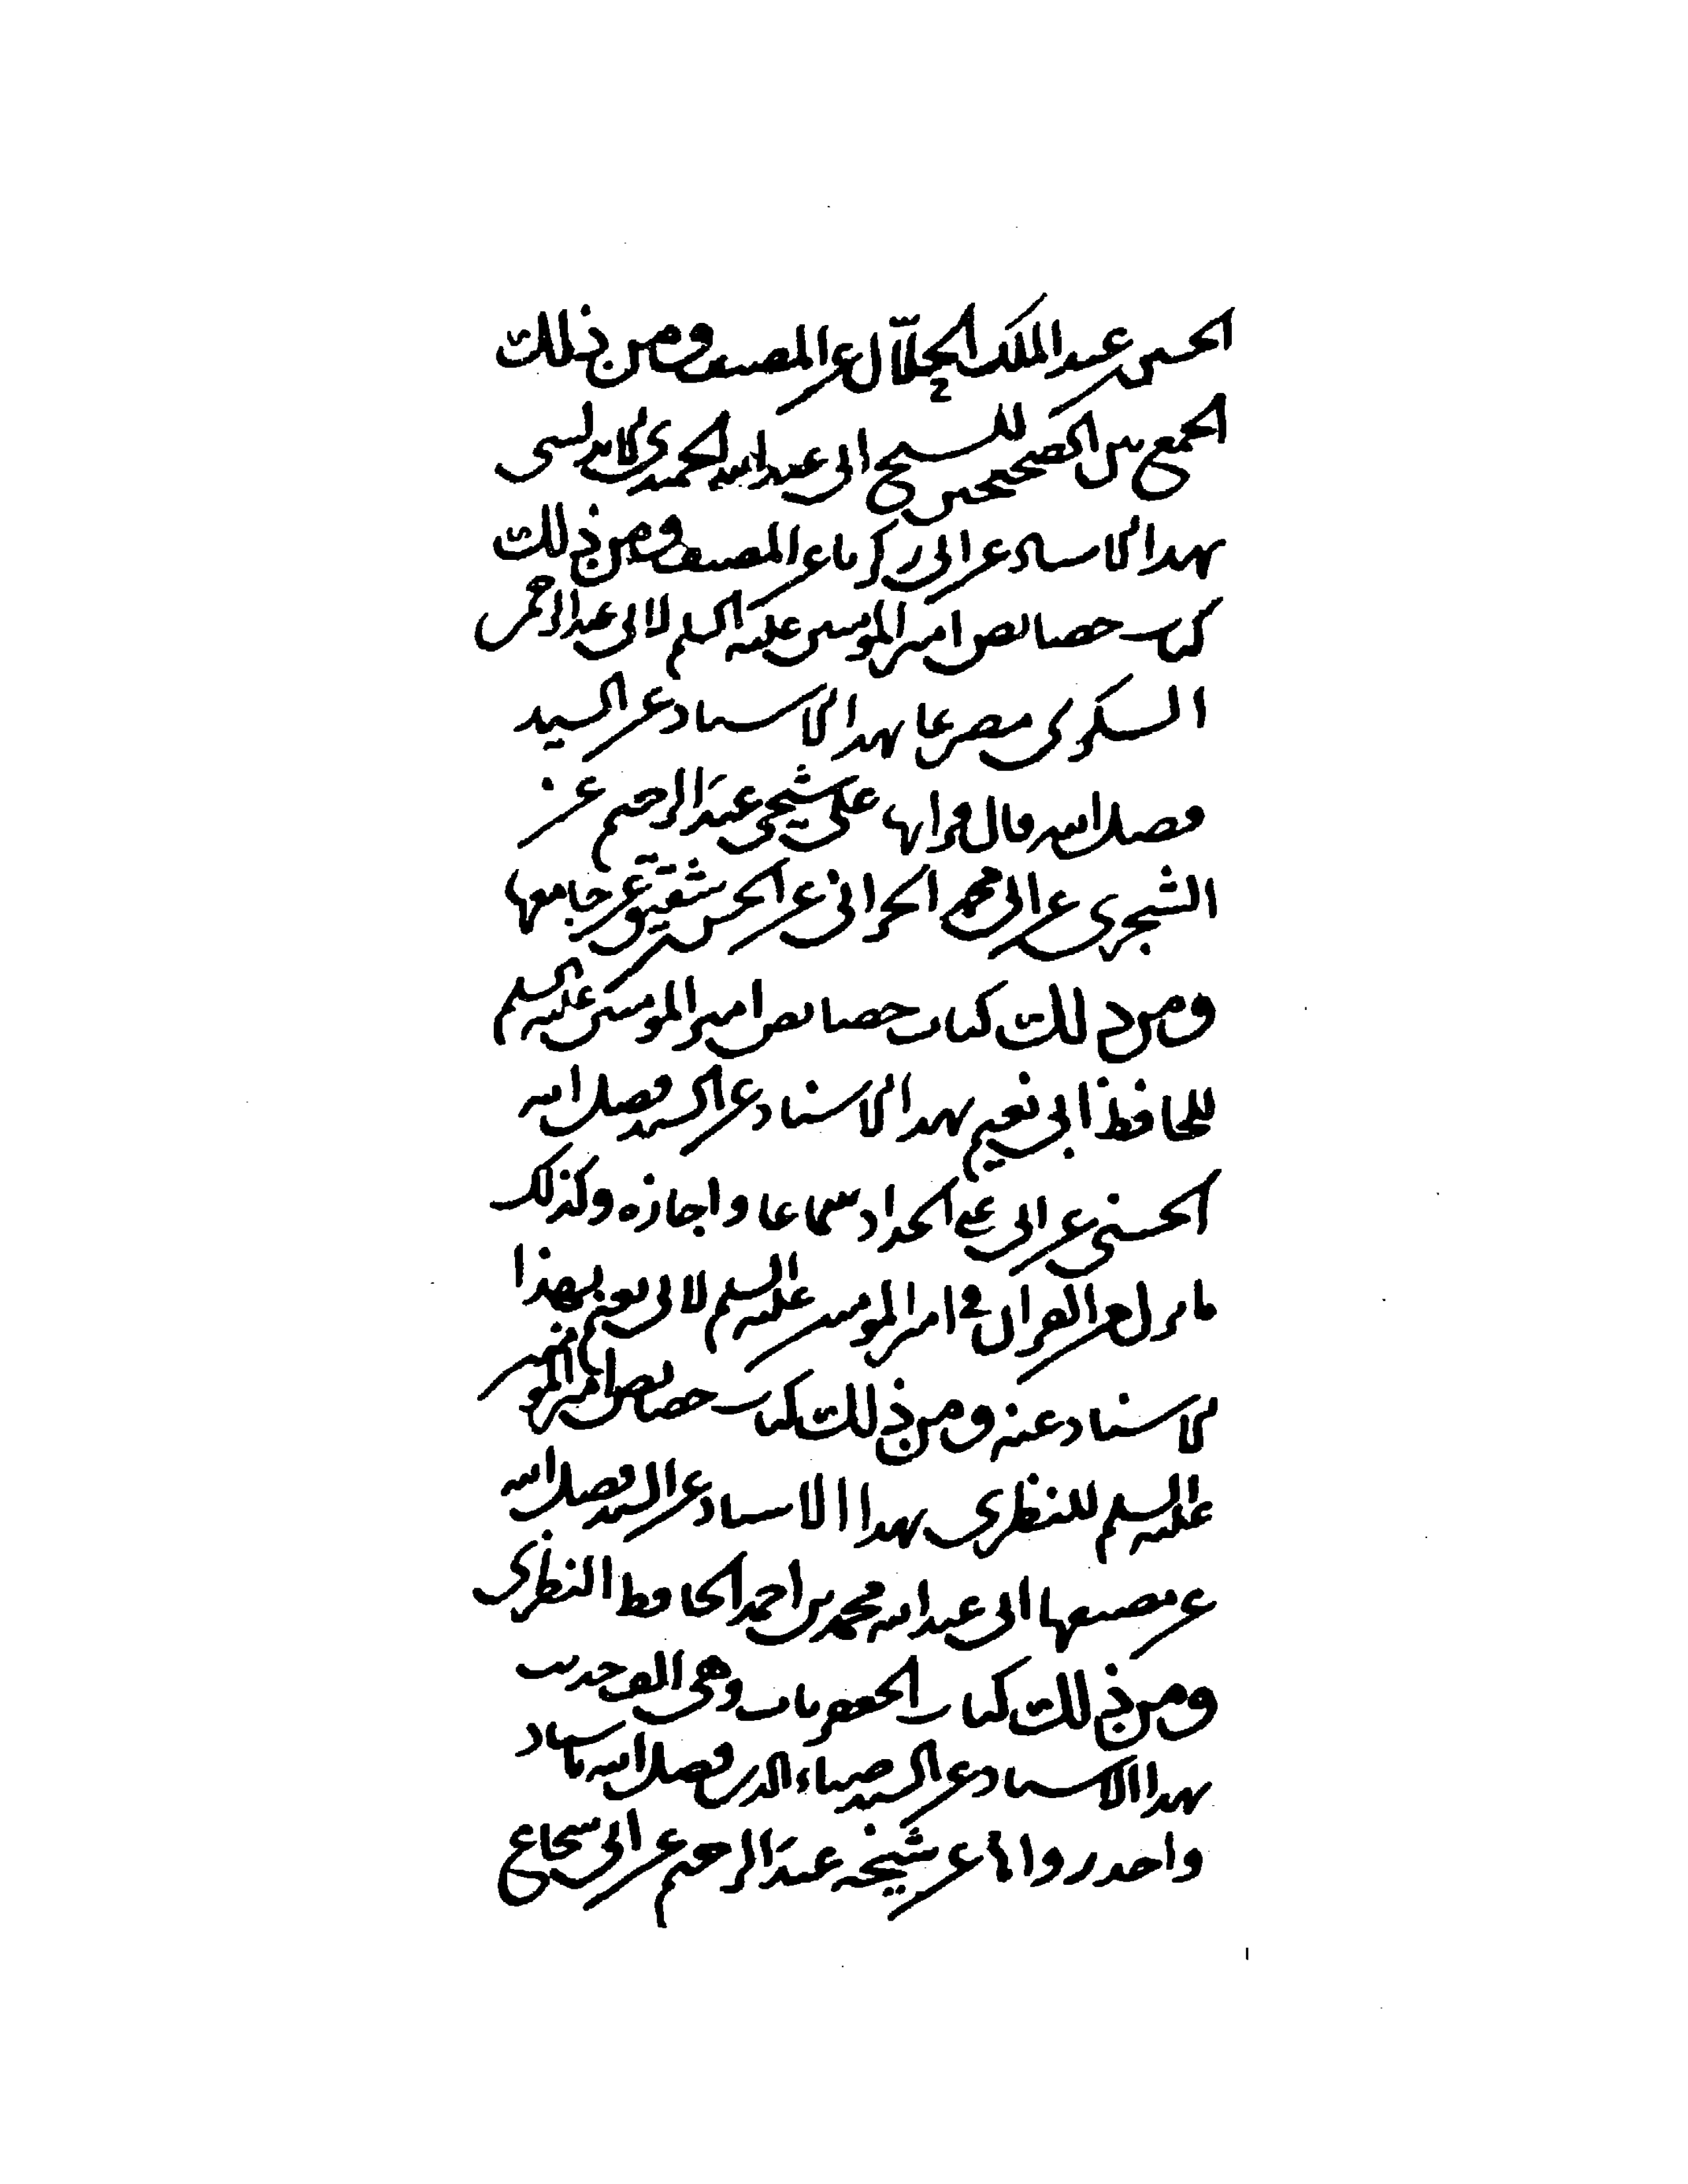 الحسين عبد الملك الخلّال عن المصنف ومن ذلك
الجمع بين الصحيحين للشيخ ابى عبد الله الحميدى الاندلسى
بهذا الاسناد عن ابى زكريا عن المصنف ومن ذلك
كتاب خصايص امير المومنين عليه السلم لابى عبد الرحمن
السكرى بهذا الاسناد عن السيد
فضل الله قال قراتها على شيخى عبد الرحيم عن
الشجرى عن ابى محمد الحرانى عن الحسن شقيق عن جامعها
ومن ذلك كتاب خصايص امير المومنين عليه السلم
للحافظ ابى نعيم بهذا الاسناد عن السيد فضل الله
الحسنى عن ابى على الحداد سماعا واجازه وكذلك
ما نزل من القران فى امير المومنين عليه السلم لابى نعيم بهذا
الاسناد عنه ومن ذلك كتاب خصايص امير المومنين
عليه السلم للنطنزى بهذا الاسناد عن السيد فضل الله
عن مصنفها ابى عبد الله محمد بن احمد الحافظ النطنزى
ومن ذلك كتاب الجعفريات وهى الف حديث
بهذا الاسناد عن السيد ضياء الدين فضل الله باسناد
واحد رواها عن شيخه عبد الرحيم عن ابى شجاع